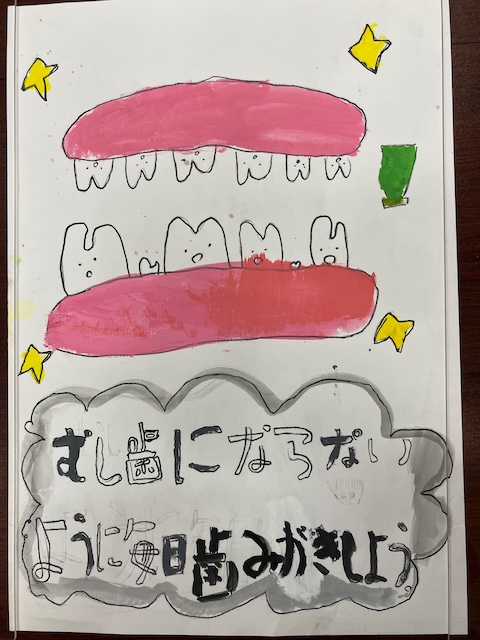 むし歯にならない
ように毎日歯みがきしよう